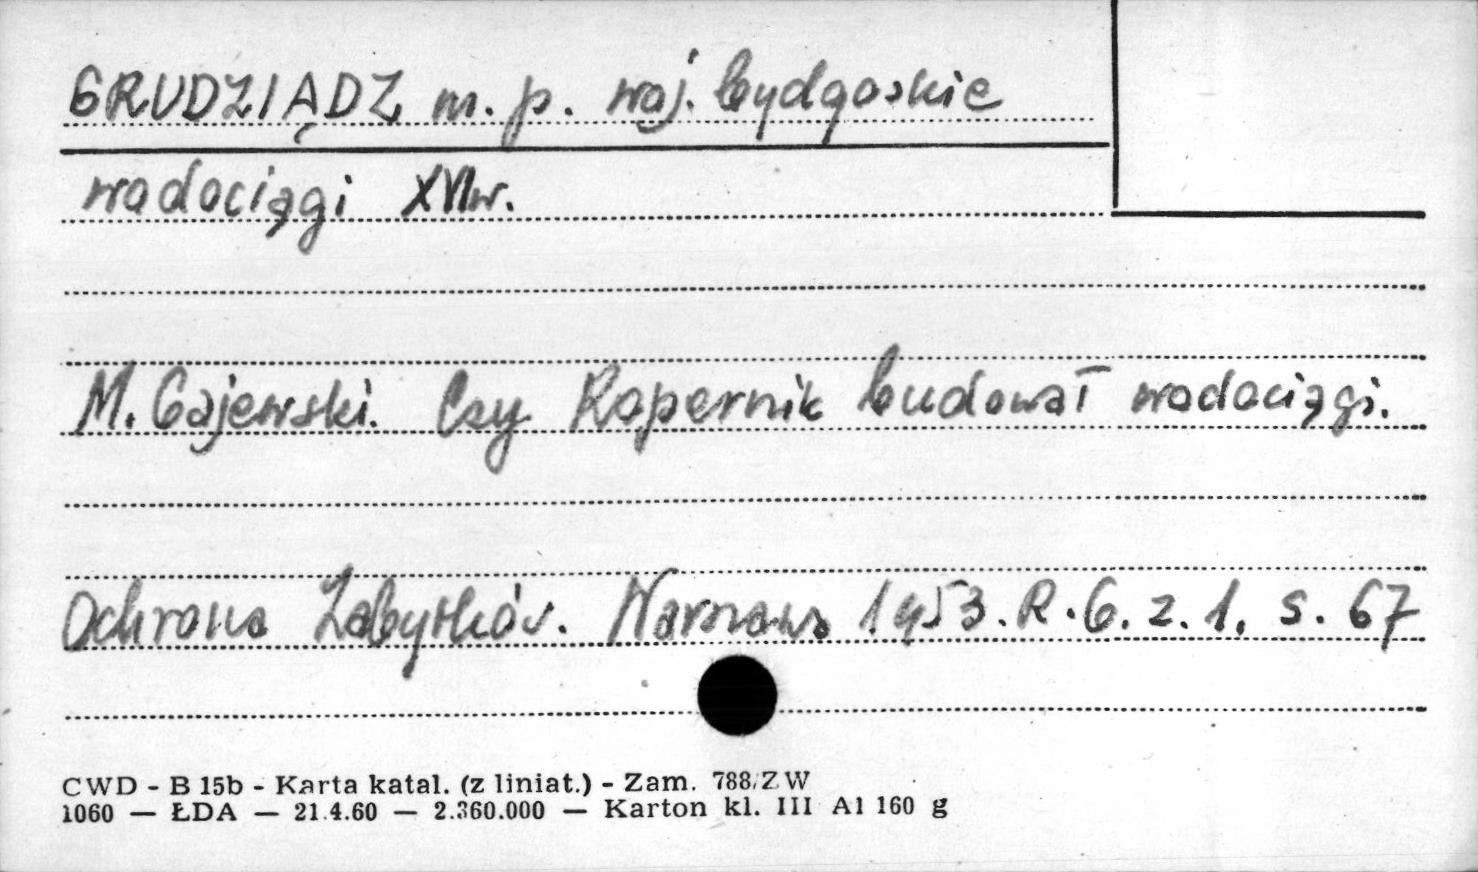 GRUDZIĄDZ m. p. woj. bydgoskie
wodociągi XVIw.
M. Gajewski. Czy Kopernik budował wodociągi.
Ochrona Zabytków. Warszawa 1953. R. 6. z. 1. s. 67
CWD - B 15b - Karta katal. (z liniat.) - Zam. 788/ZW
1060 — ŁDA — 21.4.60 — 2.360.000 — Karton kl. III A1 160 g